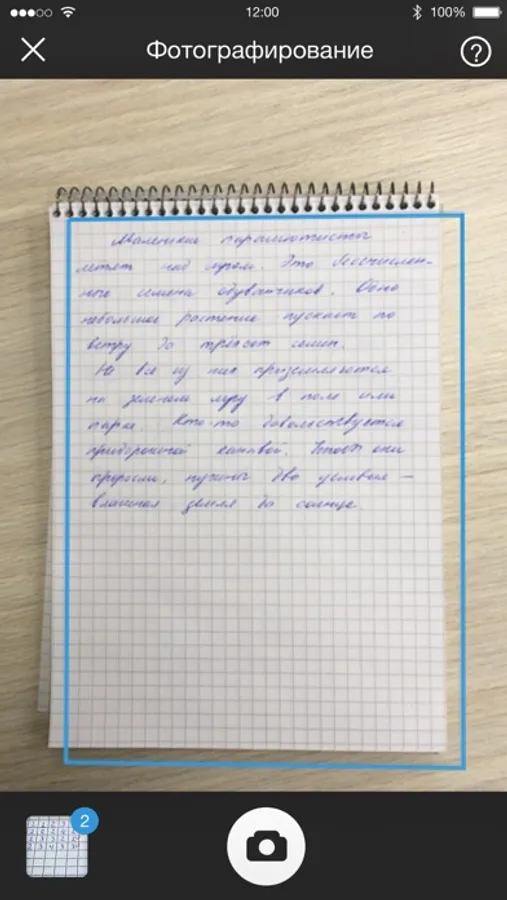 12:00
100%
Фотографирование
?
Маленькие парашютисты
летят над лугом. Это бесчислен-
ные семена одуванчиков. Одно
небольшое растение пускает по
ветру до трёхсот семян.
Не все из них приземляются
на зеленом лугу в поле или
парке. Кто-то довольствуется
придорожной канавой. Чтоб они
проросли, нужны два условия —
влажная земля да солнце
2